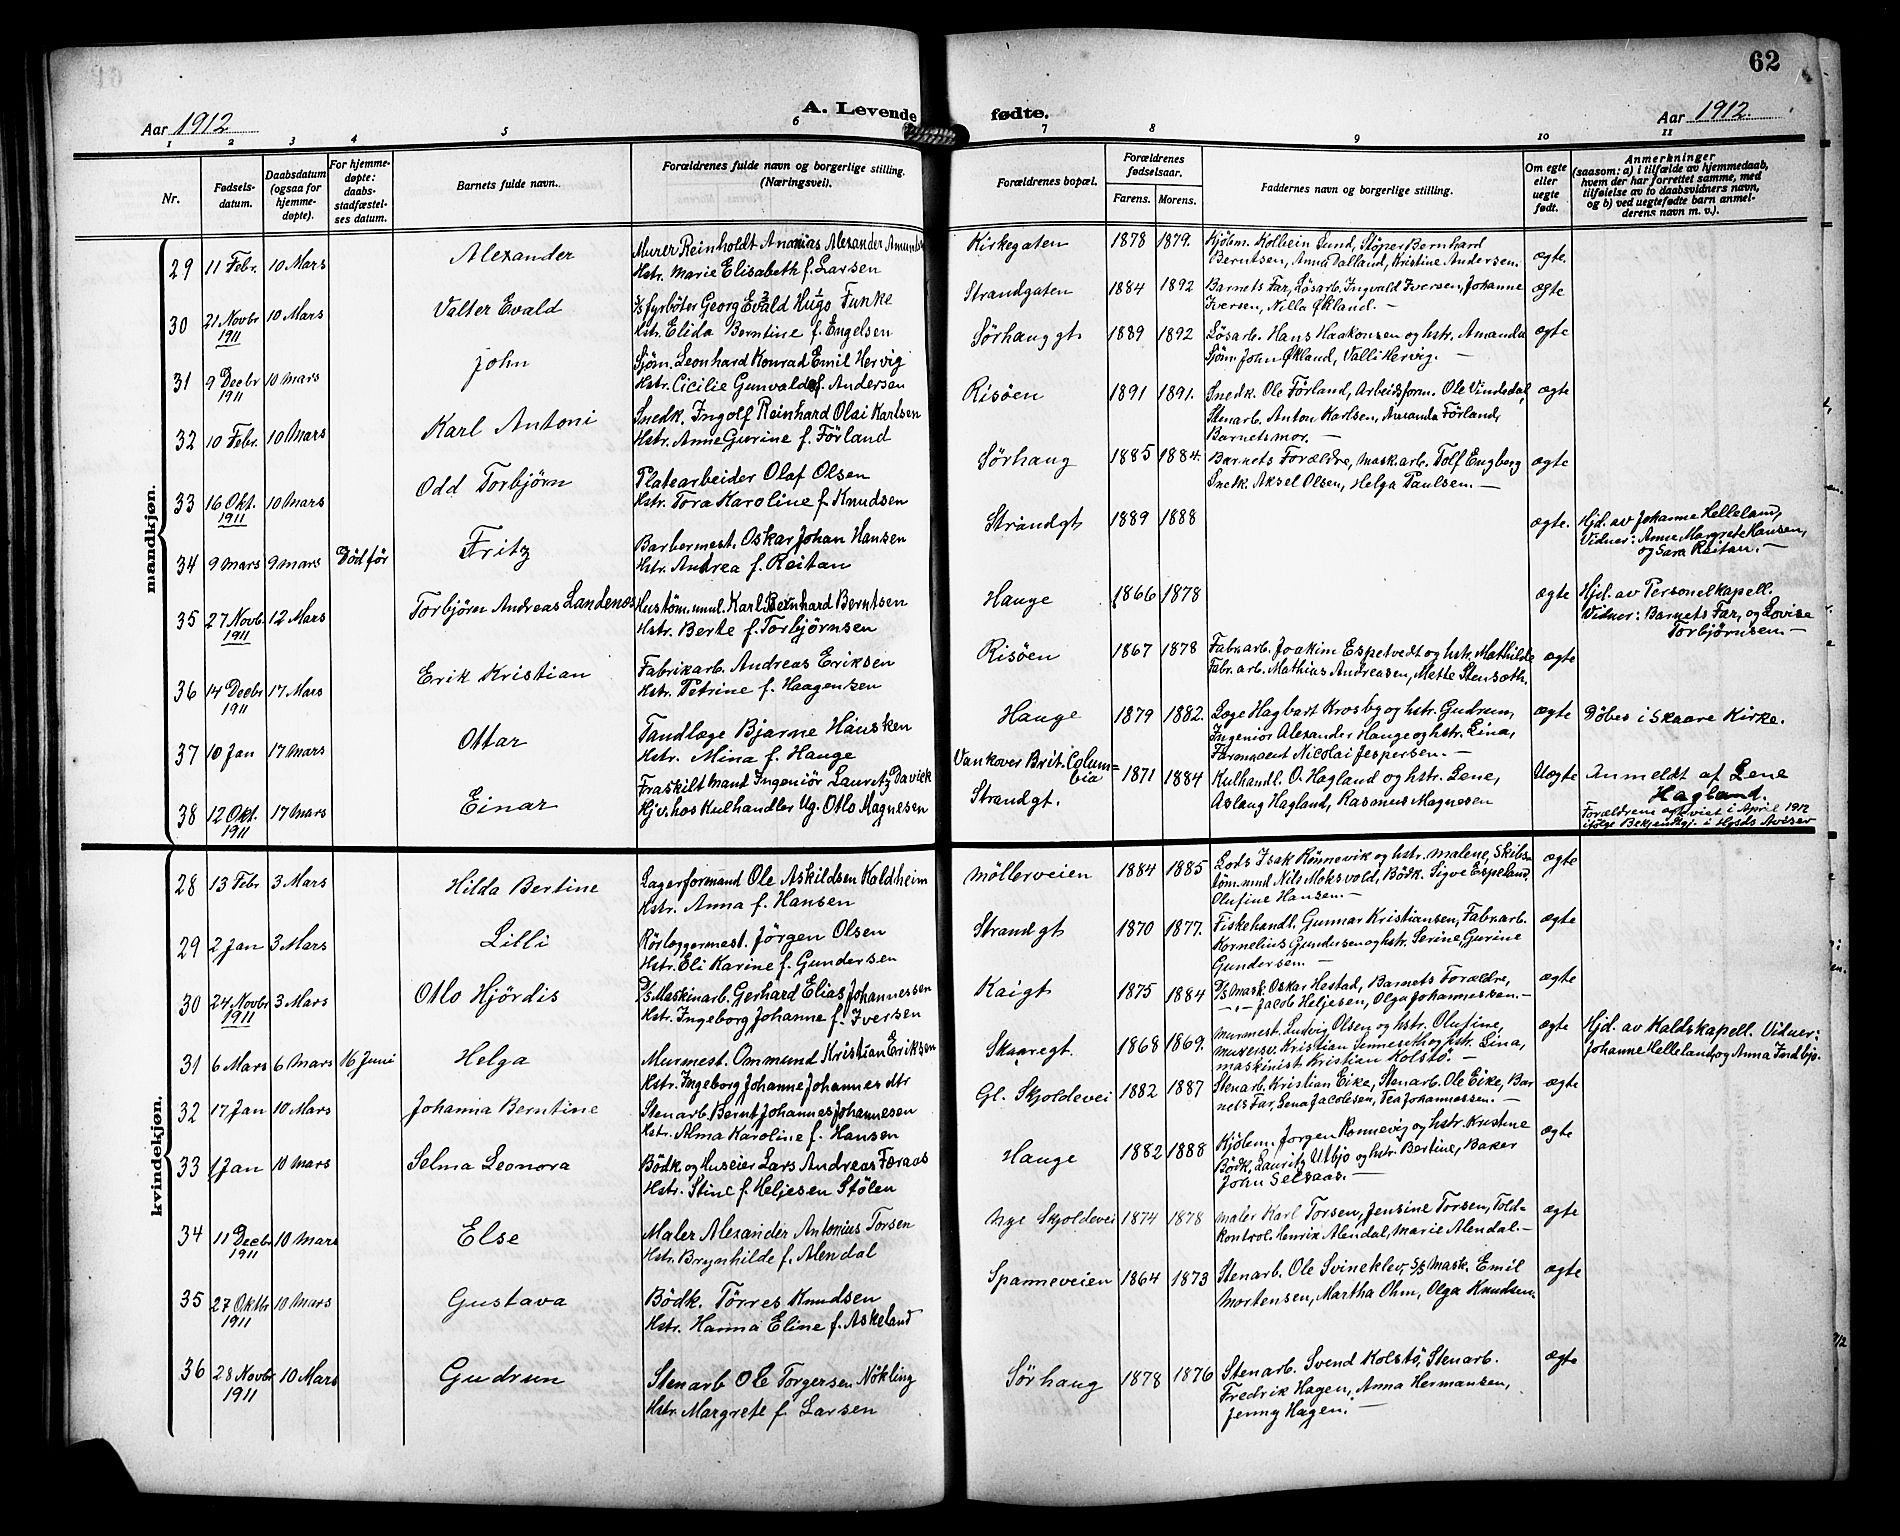 62
A. Levende fødte.
Aar 1912
Aar 1912.
1 2 3 4 5 6 7 8 9 10 11
Nr.
Fødsels-
datum.
Daabsdatum
(ogsaa for
hjemme-
døpte).
For hjemme-
døpte:
daabs-
stadfæstel-
ses datum.
Barnets fulde navn.
Forældrenes fulde navn og borgerlige stilling.
(Næringsvei).
Forældrenes bopæl.
Forældrenes
fødselsaar.
Farens. Morens.
Faddernes navn og borgerlige stilling.
Om egte
eller
uegte
født.
Anmerkninger
(saasom: a) i tilfælde av hjemmedaab,
hvem der har forrettet samme, med
tilføielse av to daabsvidners navn,
og b) ved uegtefødte barn anmel-
derens navn m. v.).
mandkjøn.
29 11 Febr. 10 Mars Alexander
Murer Reinholdt Ananias Alexander Amunds
Hstr. Marie Elisabeth f. Larsen
Kirkegaten 1878 1879.
Kjøbm. Kolbein Lund, Støper Bernhard
Berntsen, Anna Dalland, Kristine Andersen.
ægte.
30 21 Novbr 1911 10 Mars Valter Evald
S/S fyrbøter Georg Evald Hugo Funke
Hstr. Elida Berntine f. Engelsen
Strandgaten 1884 1892
Barnets Far, Løsarb. Ingvald Iversen, Johanne
Iversen, Nilla Økland. —
ægte
31 9 Decbr 1911 10 Mars John
Sjøm. Leonhard Konrad Emil Hervig
Hstr. Cicilie Gunvalda f. Andersen
Sørhauggt 1889 1892
Løsarb. Hans Haakonsen og hstr. Amanda
Sjøm John Økland, Valli Hervig. —
ægte
32 10 Febr. 10 Mars Karl Antoni
Snedk. Ingolf Reinhard Olai Karlsen
Hstr. Anne Gurine f. Førland
Risøen 1891 1891.
Snedk. Ole Førland, Arbeidsform. Ole Vindedal,
Stenarb. Anton Karlsen, Amanda Førland,
Barnets mor. —
ægte
33 16 Okt. 1911 10 Mars Odd Torbjørn
Platearbeider Olaf Olsen
Hstr. Tora Karoline f. Knudsen
Sørhaug 1885 1884.
Barnets Forældre, mask.arb. Tolf Engberg
Snedk. Aksel Olsen, Helga Paulsen. —
ægte
34 9 Mars 9 Mars Død før Fritz
Barbermest. Oskar Johan Hansen
Hstr. Andrea f. Reitan
Strandgt 1889 1888
ægte.
Hjd. av Johanne Helleland,
Vidner: Anne Margrete Hansen,
og Sara Reitan. —
35 27 Novb. 1911 12 Mars Torbjørn Andreas Landenes
Hustøm.mml. Karl Bernhard Berntsen
Hstr. Berte f. Torbjørnsen
Hauge 1866 1878
ægte
Hjd. av Personelkapell.
Vidner: Barnets Far, og Lovise
Torbjørnsen. —
36 14 Decbr 1911 17 Mars Erik Kristian
Fabrikarb. Andreas Eriksen
Hstr. Petrine f. Haagensen
Risøen 1867 1878
Fabr.arb. Joakim Espetvedt og hstr. Mathilde
Fabr.arb. Mathias Andreasen, Mette Stensøth.
ægte
37 10 Jan 17 Mars Ottar
Tandlæge Bjarne Hausken
Hstr. Mina f. Hauge
Hauge 1879 1882.
Læge Hagbart Krosby og hstr. Gudrun,
Ingeniør Alexander Hauge og hstr. Lina,
Farmaceut Nicolai Jespersen. —
ægte
Døbes i Skaare Kirke.
38 12 Okt. 1911 17 Mars Einar
Fraskilt mand Ingeniør Lauretz Davick
Hjv. hos Kulhandler Ug. Otlo Magnesen
Vankover Brit. Colum=
bia
Strandgt.
1871 1884
Kulhandl. O. Hagland og hstr. Lene,
Aslaug Hagland, Rasmus Magnesen
Uægte
Anmeldt af Lene
Hagland.
Forældrene egteviet i April 1912
ifølge Bekjendtgj. i Hgsds Aviser
kvindekjøn.
28 13 Febr 3 Mars Hilda Bertine
Lagerformand Ole Askildsen Koldheim
Hstr. Anna f. Hansen
Møllerveien 1884 1885
Lods Isak Rønnevik og hstr. Malene, Skibs-
tømmmd Nils Moksvold, Bødk. Sigve Espeland
Olufine Hansen. —
ægte
29 2 Jan 3 Mars Lilli
Rørlæggermest. Jørgen Olsen
Hstr. Eli Karine f. Gundersen
Strandgt 1870 1877.
Fiskehandl. Gunnar Kristiansen, Fabr.arb.
Kornelius Gundersen og hstr. Serine, Gurine
Gundersen. —
ægte
30 24 Novbr 1911 3 Mars Otlo Hjørdis
D/S Maskinarb. Gerhard Elias Johannessen
Hstr. Ingeborg Johanne f. Iversen
Kaigt 1875 1884
D/S Mask. Oskar Hestad, Barnets Forældre,
— Jacob Heljesen, Olga Johannessen. —
ægte
31 6 Mars 6 Mars 16 Juni Helga
Murmest. Ommund Kristian Eriksen
Hstr. Ingeborg Johanne Johannesdtr
Skaaregt. 1868 1869.
Murmest. Ludvig Olsen og hstr. Olufine,
Murersv. Kristian Tennseth og hstr. Lina,
maskinist Kristian Kolstø. —
ægte
Hjd. av Kaldskapell. Vidner:
Johanne Helleland, og Anna Indbjo.
32 17 Jan 10 Mars Johanna Berntine
Stenarb. Bernt Johannes Johannesen
Hstr. Alma Karoline f. Hansen
Gl. Skjoldevei 1882 1887
Stenarb. Kristian Eike, Stenarb. Ole Eike, Bar
nets Far, Lena Jacobsen, Tea Johannessen. —
ægte
33 1 Jan 10 Mars Selma Leonora
Bødk. og Huseier Lars Andreas Færaas
Hstr. Stine f. Heljesen Stølen
Hauge 1882 1888
Kjøbm. Jørgen Rønnevig og hstr. Kristine
Bødk. Lauritz Utbjo og hstr. Bertine, Baker
John Selsaas. —
ægte
34 11 Decbr 1911 10 Mars Else
Maler Alexander Antonius Torsen
Hstr. Brynhilde f. Alendal
Nye Skjoldevei 1874 1878
Maler Karl Torsen, Jensine Torsen, Told-
kontrol. Henrik Alendal, Marie Alendal. —
ægte
35 27 Oktbr 1911 10 Mars Gustava
Bødk. Tørres Knudsen
Hstr. Hanna Eline f. Askeland
Spanneveien 1864 1873
Stenarb. Ole Svineklev, S/S Mask. Emil
Mortensen, Martha Ohm, Olga Knudsen.
ægte
36 28 Novbr 1911 10 Mars Gudrun
Stenarb Ole Torgersen Nökling
Hstr. Margrete f. Larsen
Sørhaug 1878 1876
Stenarb. Svend Kolstø, Stenarb.
Fredrik Hagen, Anna Hermansen,
Jenny Hagen. —
ægte